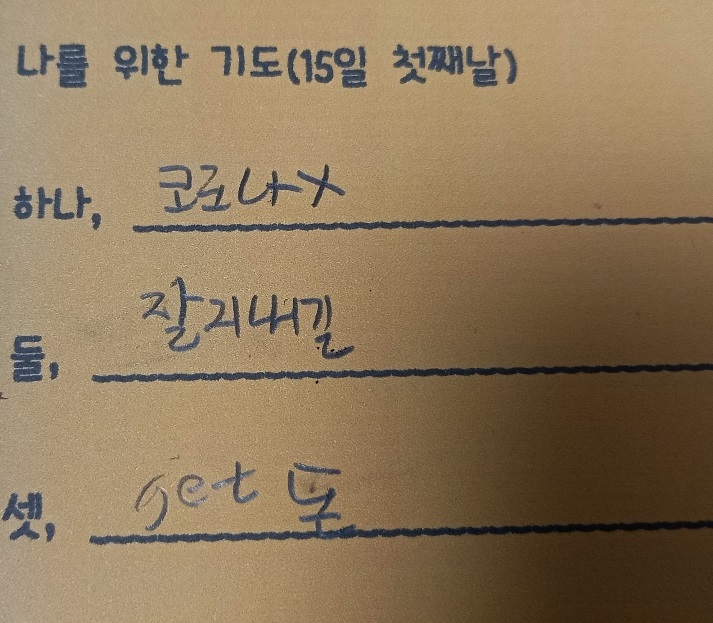 나를 위한 기도(15일 첫째날)
하나, 코로나X
둘, 잘지내길
셋, get 돈